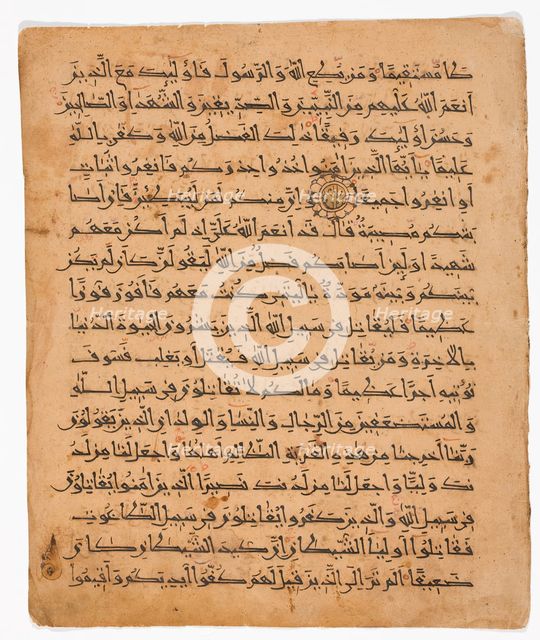 طا مستقيما ومن يطع الله والرسول فأوليك مع الذين
أنعم الله عليهم من النبيين والصديقين والشهدا والصالحين
وحسن أوليك رفيقا ذلك الفضل من الله وكفى بالله
عليما يا أيها الذين آمنوا خذوا حذركم فانفروا ثبات
أو انفروا جميعا وإن منكم لمن ليبطئن فإن أصا
بتكم مصيبة قال قد أنعم الله علي إذ لم أكن معهم
شهيدا ولين أصابكم فضل من الله ليقولن كأن لم تكن
بينكم وبينه مودة يا ليتني كنت معهم فأفوز فوزا
عظيما فليقاتل في سبيل الله الذين يشرون الحيوة الدنيا
بالاخرة ومن يقاتل في سبيل الله فيقتل أو يغلب فسوف
نوتيه أجرا عظيما وما لكم لا تقاتلون في سبيل الله
والمستضعفين من الرجال والنسا والولدان الذين يقولون
ربنا أخرجنا من هذه القرية الظالم أهلها واجعل لنا من لد
نك وليا واجعل لنا من لدنك نصيرا الذين آمنوا يقاتلون
في سبيل الله والذين كفروا يقاتلون في سبيل الطاغوت
فقاتلوا أوليا الشيطان إن كيد الشيطان كان
ضعيفا ألم تر إلى الذين قيل لهم كفوا أيديكم وأقيموا
Heritage
Heritage
Heritage
Heritage
Heritage
Heritage